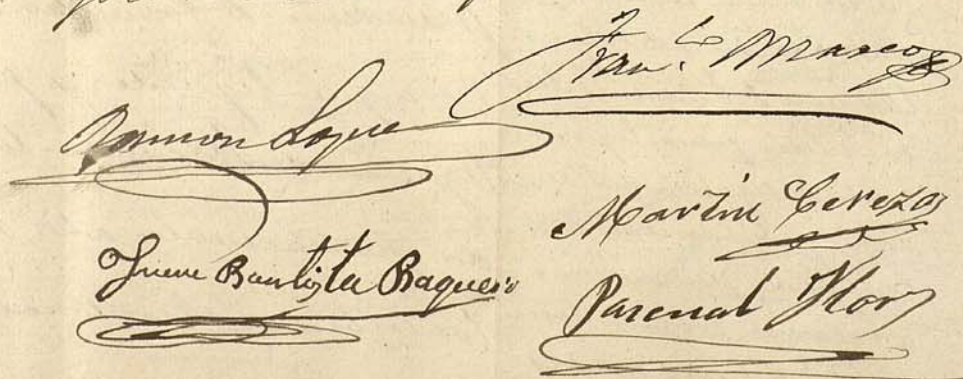 Franco Marcos
Ramon Lope
Martin Cerezo
Juan Bautista Baquero
Pascual Flors